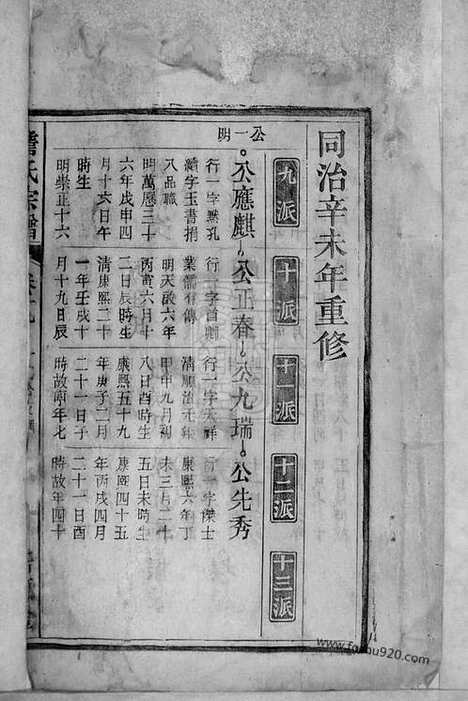 同治辛未年重修
九派
十派
十一派
十二派
十三派
公一明
公應麒
公正春
公九瑞
公先秀
行一字黙孔
續字玉書捐
八品職
明萬歷三十
六年戊申四
月十六日午
時生
明崇正十六
行一字首卿
業儒有傳
明天啟六年
丙寅六月十
二日辰時生
清康熙二十
一年壬戌十
月十九日辰
行一字天祥
清順治元年
甲申九月初
八日酉時生
康熙五十九
年庚子二月
二十一日
時故 年七
行一字傑士
康熙六年丁
未三月二十
五日未時生
康熙四十五
年丙戌四月
二十一日酉
時故年四十
氏宗譜